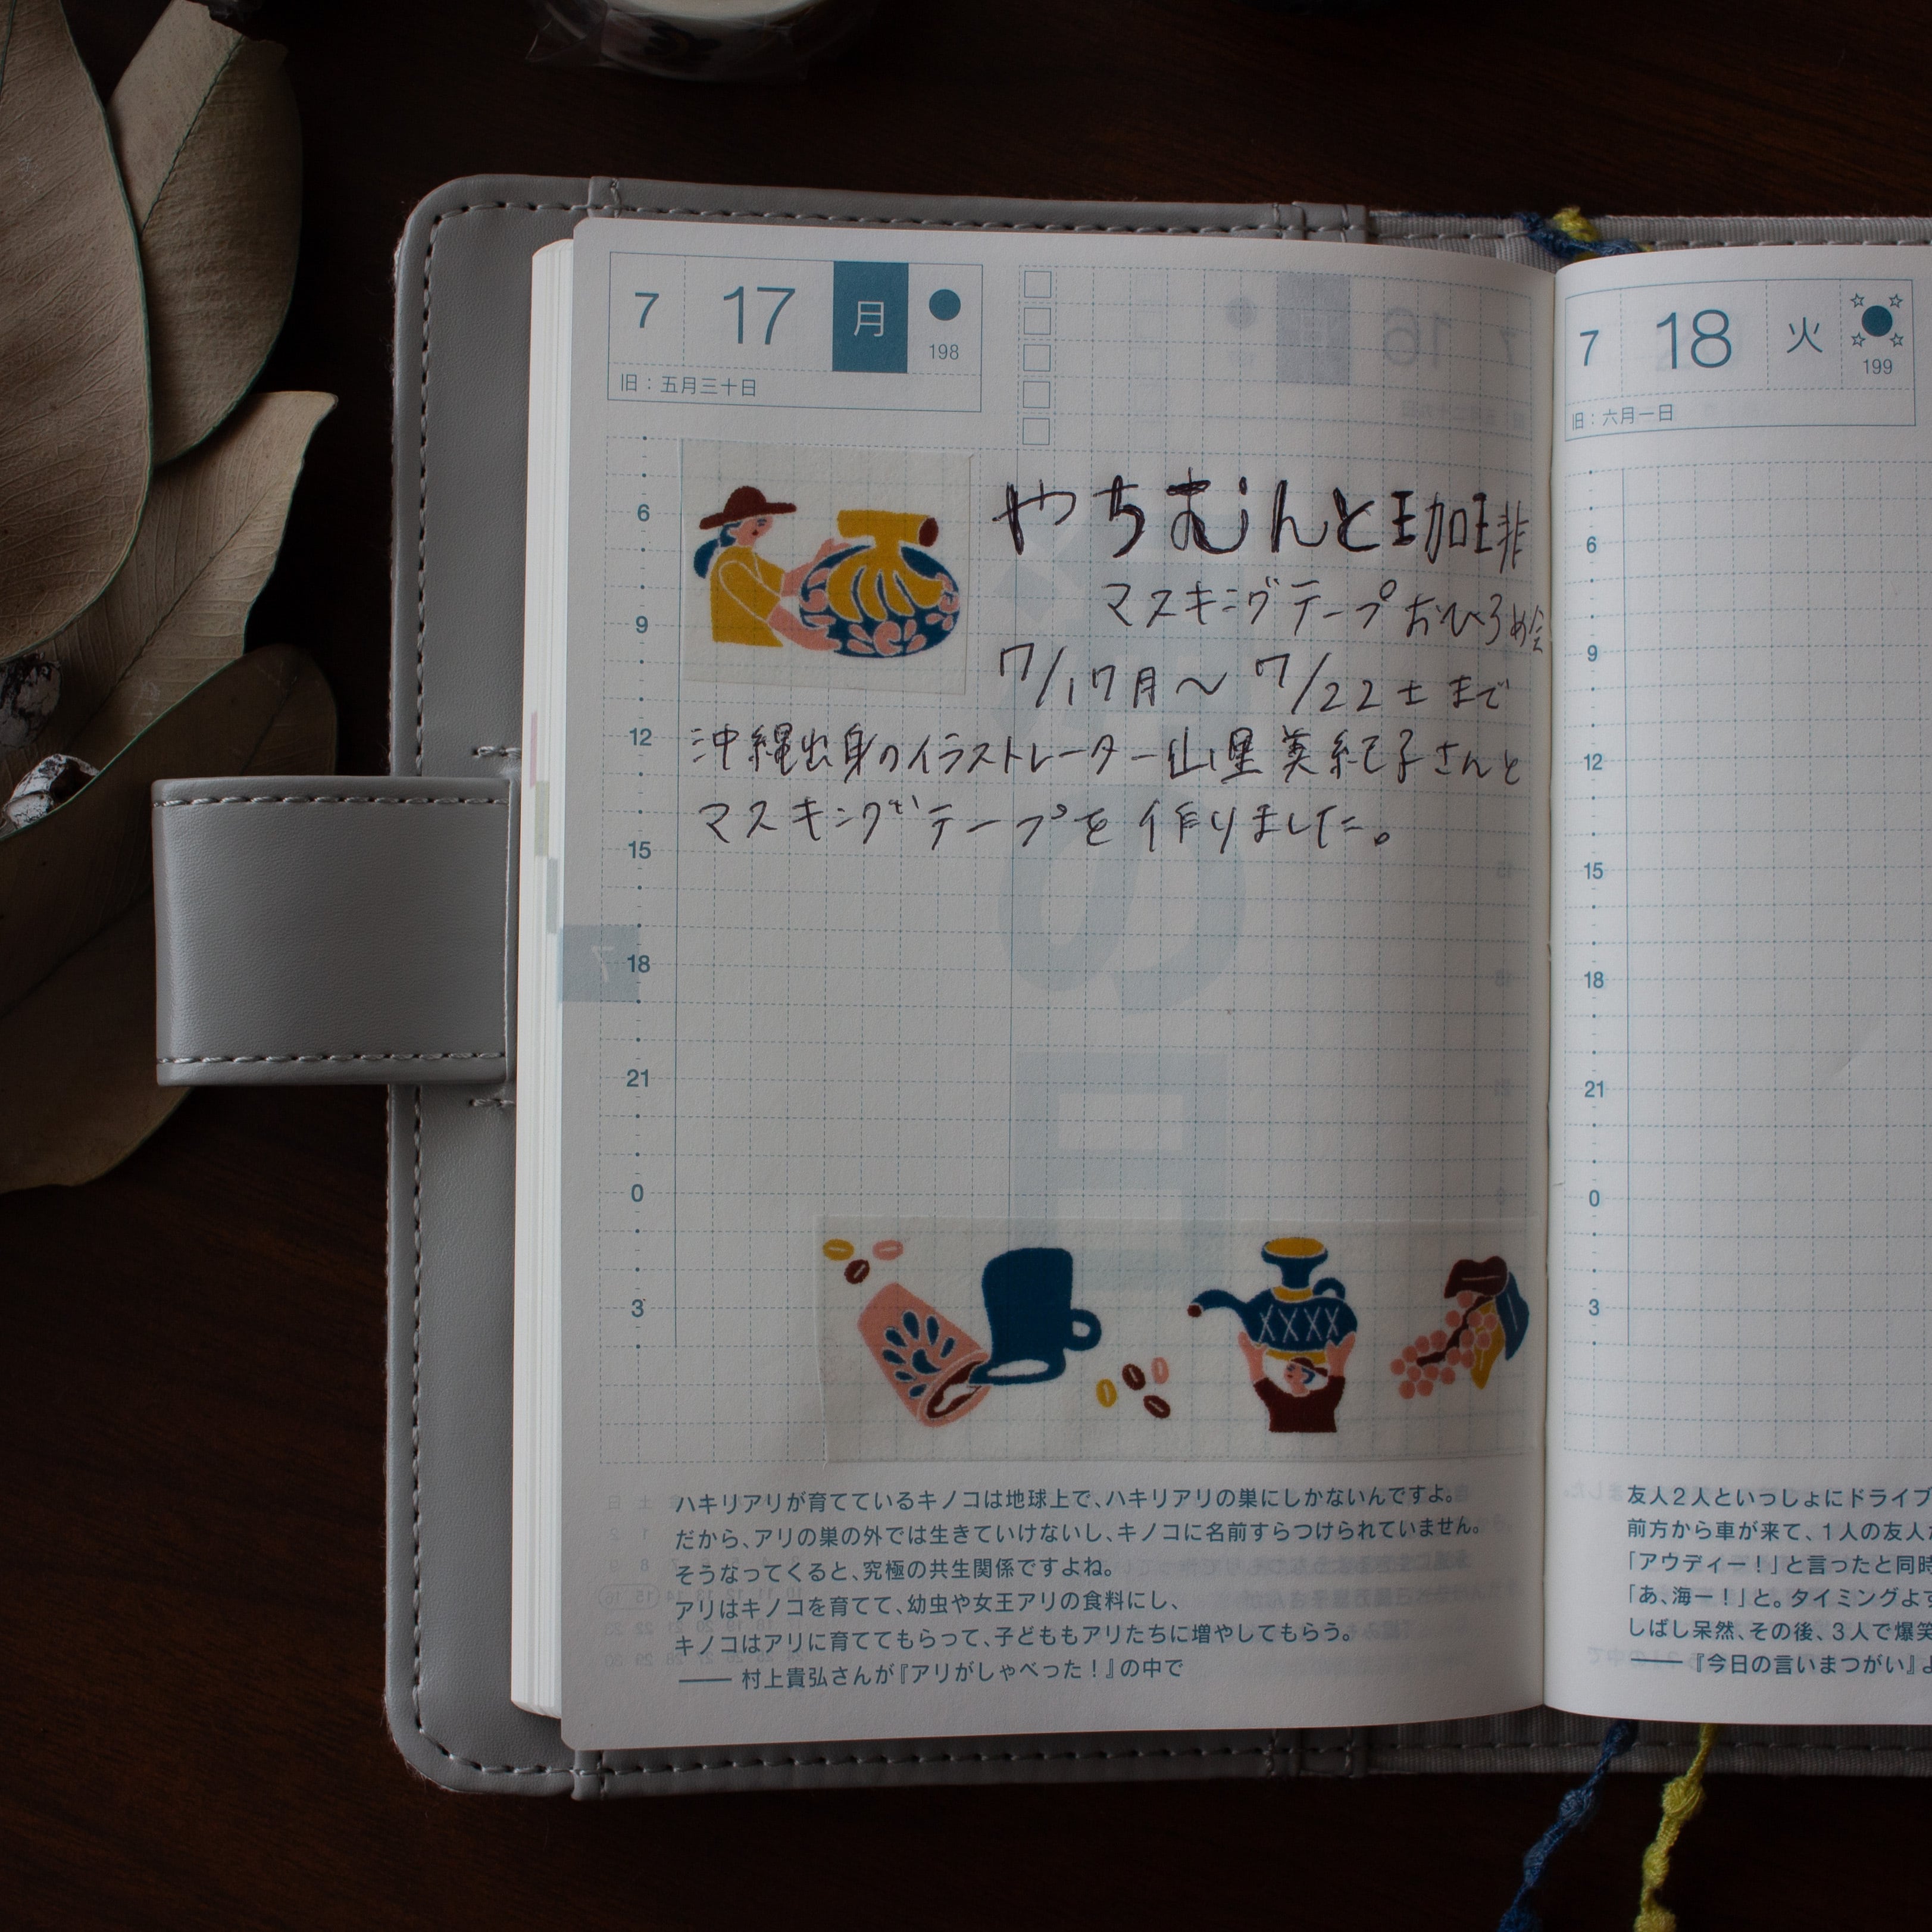 7 17 月 198
旧：五月三十日
やちむんと珈琲
マスキングテープおひろめ会
7/17月〜7/22土まで
沖縄出身のイラストレーター山里美紀子さんと
マスキングテープを作りました。
6
9
12
15
18
21
0
3
7
ハキリアリが育てているキノコは地球上で、ハキリアリの巣にしかないんですよ。
だから、アリの巣の外では生きていけないし、キノコに名前すらつけられていません。
そうなってくると、究極の共生関係ですよね。
アリはキノコを育てて、幼虫や女王アリの食料にし、
キノコはアリに育ててもらって、子どももアリたちに増やしてもらう。
―― 村上貴弘さんが『アリがしゃべった！』の中で
7 18 火 199
旧：六月一日
6
9
12
15
18
21
0
3
友人2人といっしょにドライブ
前方から車が来て、1人の友人
「アウディー！」と言ったと同時
「あ、海ー！」と。タイミングよす
しばし呆然、その後、3人で爆笑
―― 『今日の言いまつがい』よ